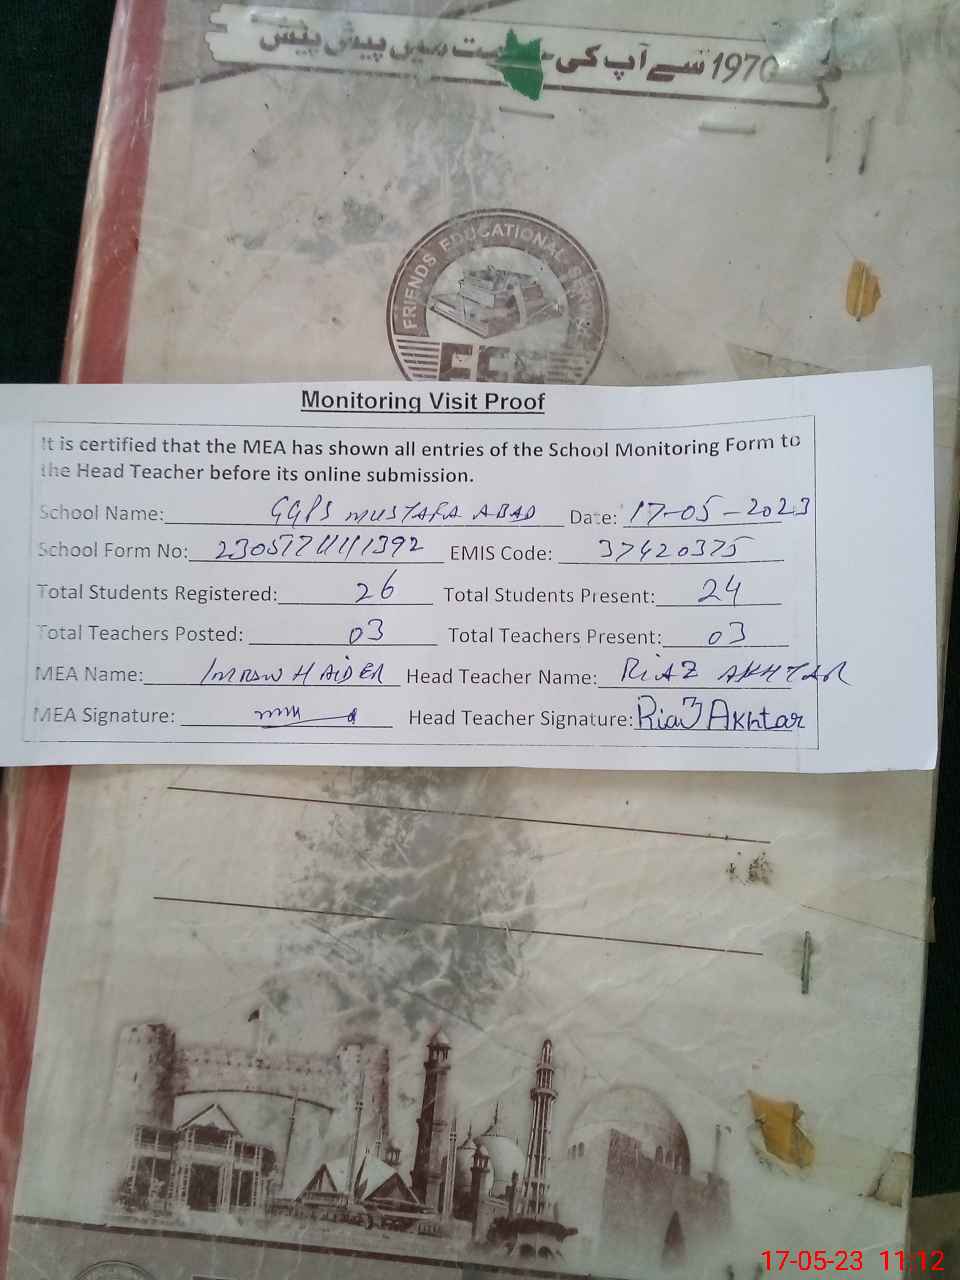 1970 سے آپ کی میں پیش پیش
FRIENDS EDUCATIONAL
Monitoring Visit Proof
It is certified that the MEA has shown all entries of the School Monitoring Form to
the Head Teacher before its online submission.
School Name: GGPS MUSTAFA ABAD Date: 17-05-2023
School Form No: EMIS Code: 37420375
Total Students Registered: 26 Total Students Present: 24
Total Teachers Posted: 03 Total Teachers Present: 03
MEA Name: IMRAN HAIDER Head Teacher Name: RIAZ AKHTAR
MEA Signature: Head Teacher Signature: Riaz Akhtar
17-05-23 11:12